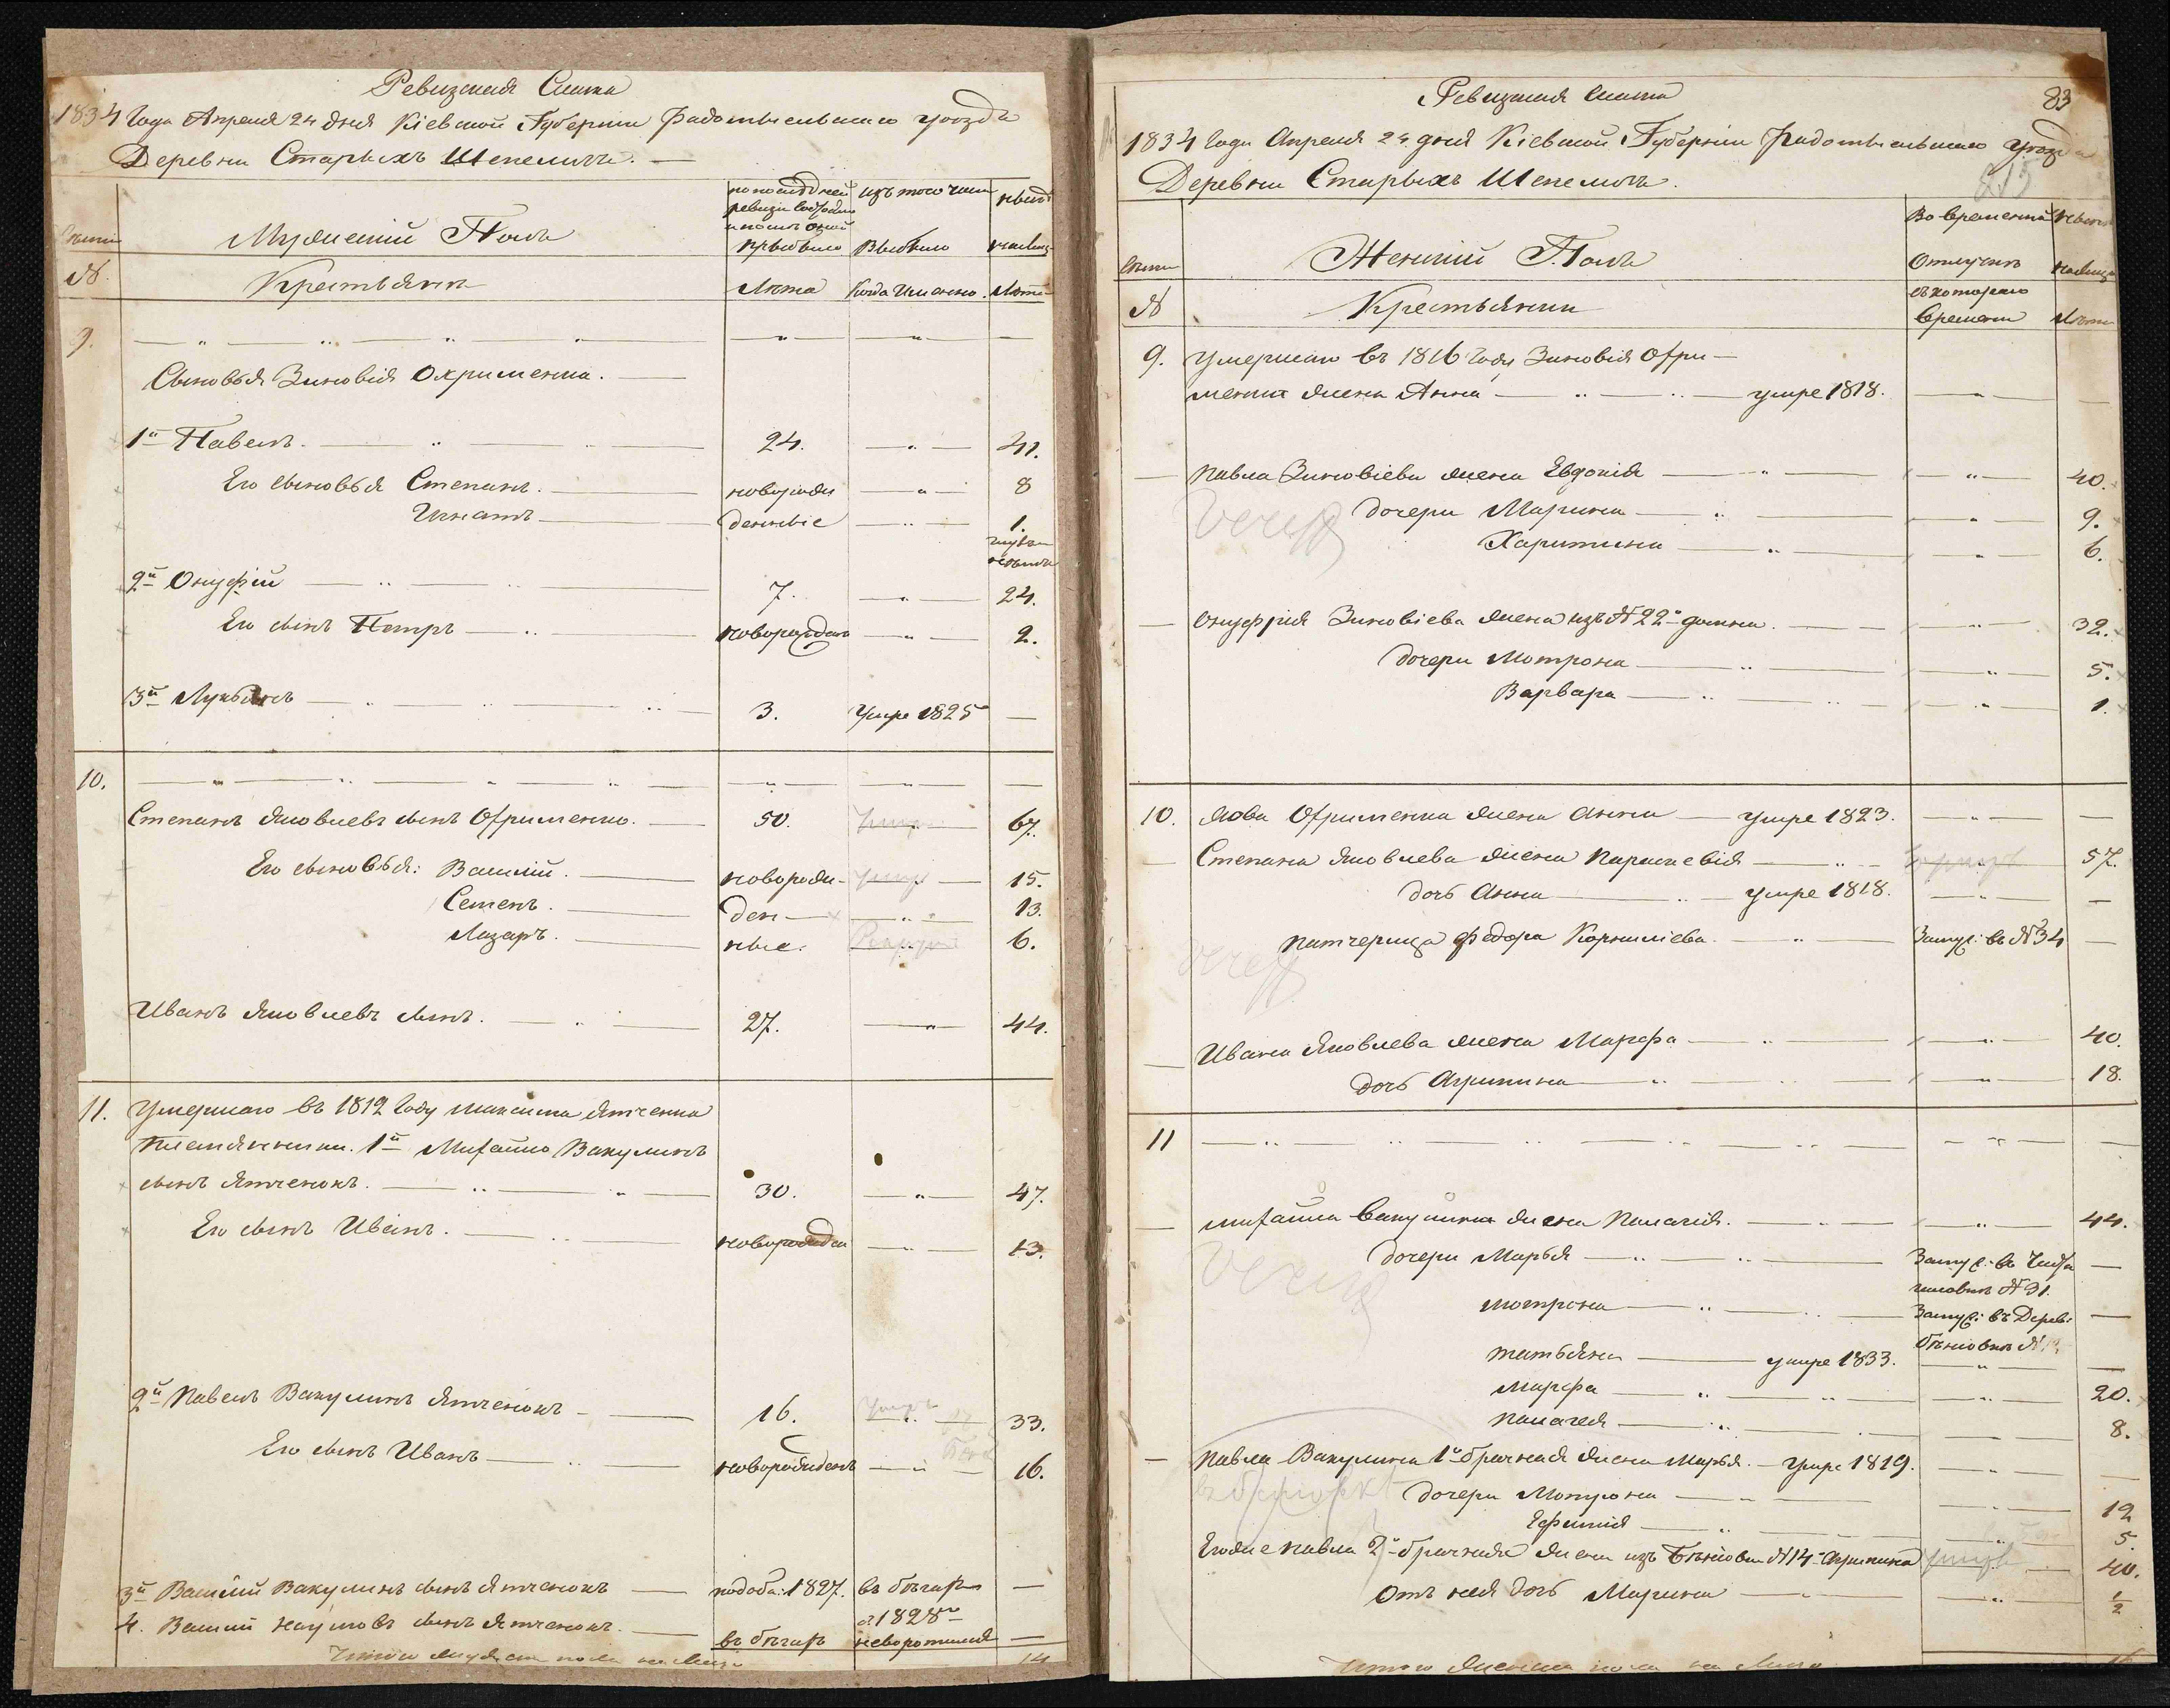 Ревизская Сказка
1834 Года Апреля 24 дня Кіевской Губерніи Радомысльскаго уѣзда
Деревни Старыхъ Шепеличъ.
Мужескій Полъ
по последней ревизіи состояло и послѣ оной прибыло
изъ того числа Выбыло
нынѣ на лицо
№.
Крестьяне
Лѣта
Когда Именно.
Лѣта
9.
Сыновья Зиновія Охрименка.
1й Павелъ. 24. 41.
Его сыновья Степанъ. новорож 8
Игнатъ денные 1.
2й Онуфрій 7. 24.
Его сынъ Петръ новорожденъ 2.
3й Лукьянъ 3. Умре 1825 —
10.
Степанъ Яковлевъ сынъ Офрименко. 50. 67.
Его сыновья: Василій. новорож- 15.
Семенъ. ден- 13.
Лазарь. ные. 6.
Иванъ Яковлевъ сынъ. 27. 44.
11. Умершаго въ 1812 Году Максима Ятченка
племянники. 1й Михайло Вакулинъ
сынъ Ятченокъ. 30. 47.
Его сынъ Иванъ. новорожден 13.
2й Павелъ Вакулинъ Ятченокъ 16. 33.
Его сынъ Иванъ новорожденъ 16.
3й Василій Вакулинъ сынъ Ятченокъ 1827. въ бѣгахъ —
4. Василий Наумовъ сынъ Ятченокъ. въ бѣгахъ с 1828го невозротился —
Итого мужеска пола на лицо 14
Ревизская Сказка
83
1834 Года Апреля 24 дня Кіевской Губерніи Радомысльскаго уѣзда
Деревни Старыхъ Шепеличъ.
Женскій Полъ
Во временной Отлучкѣ
нынѣ на лицо
№
Крестьянки
съ котораго времени
Лѣта
9. Умершаго въ 1816 Году Зиновія Офри-
менка жена Анна умре 1818.
Павла Зиновіева жена Евдокія 40.
дочери Марина 9.
Харитина 6.
Онуфрія Зиновіева жена изъ № 22го домна. 32.
дочери Мотрона 5.
Варвара 1.
10. Якова Офрименка жена Анна умре 1823. —
Степана Яковлева жена Параскевія 57.
дочь Анна умре 1818. —
патчерица Федора Корниліева. Замуж: въ № 34 —
Ивана Яковлева жена Марфа 40.
дочь Агрипина 18.
11
Михайла Вакулина жена Палагія. 44.
дочери Марья Замуж: въ —
Мотрона Замуж: въ Дерев: —
Татьяна умре 1833. —
Марфа 20.
Палагея 8.
Павла Вакулина 1о брачная жена Марья. Умре 1819. —
дочери Мотрона 12
Ефимія 5.
Егоже Павла 2о брачная жена изъ №14 Агрипина 40.
Отъ нея дочь Марина ½
Итого женска пола на лицо